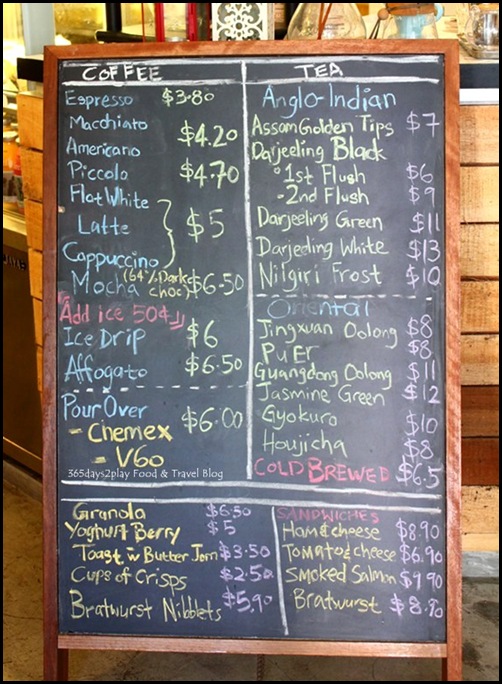 COFFEE
Espresso $3.80
Macchiato
Americano $4.20
Piccolo $4.70
Flat White
Latte $5
Cappuccino
Mocha (64% Dark choc) $6.50
Add ice 50¢
Ice Drip $6
Affogato $6.50
Pour Over $6.00
- Chemex
- V60
365days2play Food & Travel Blog
TEA
Anglo-Indian
Assam Golden Tips $7
Darjeeling Black
1st Flush $6
-2nd Flush $9
Darjeeling Green $11
Darjeeling White $13
Nilgiri Frost $10
Oriental
Jingxuan Oolong $8
Pu Er $8
Guangdong Oolong $11
Jasmine Green $12
Gyokuro $10
Houjicha $8
COLD BREWED $6.5
Granola $6.50
Yoghurt Berry $5
Toast w Butter Jam $3.50
Cups of Crisps $2.50
Bratwurst Nibblets $5.90
SANDWICHES
Ham & cheese $8.90
Tomato & cheese $6.90
Smoked Salmon $9.90
Bratwurst $8.90